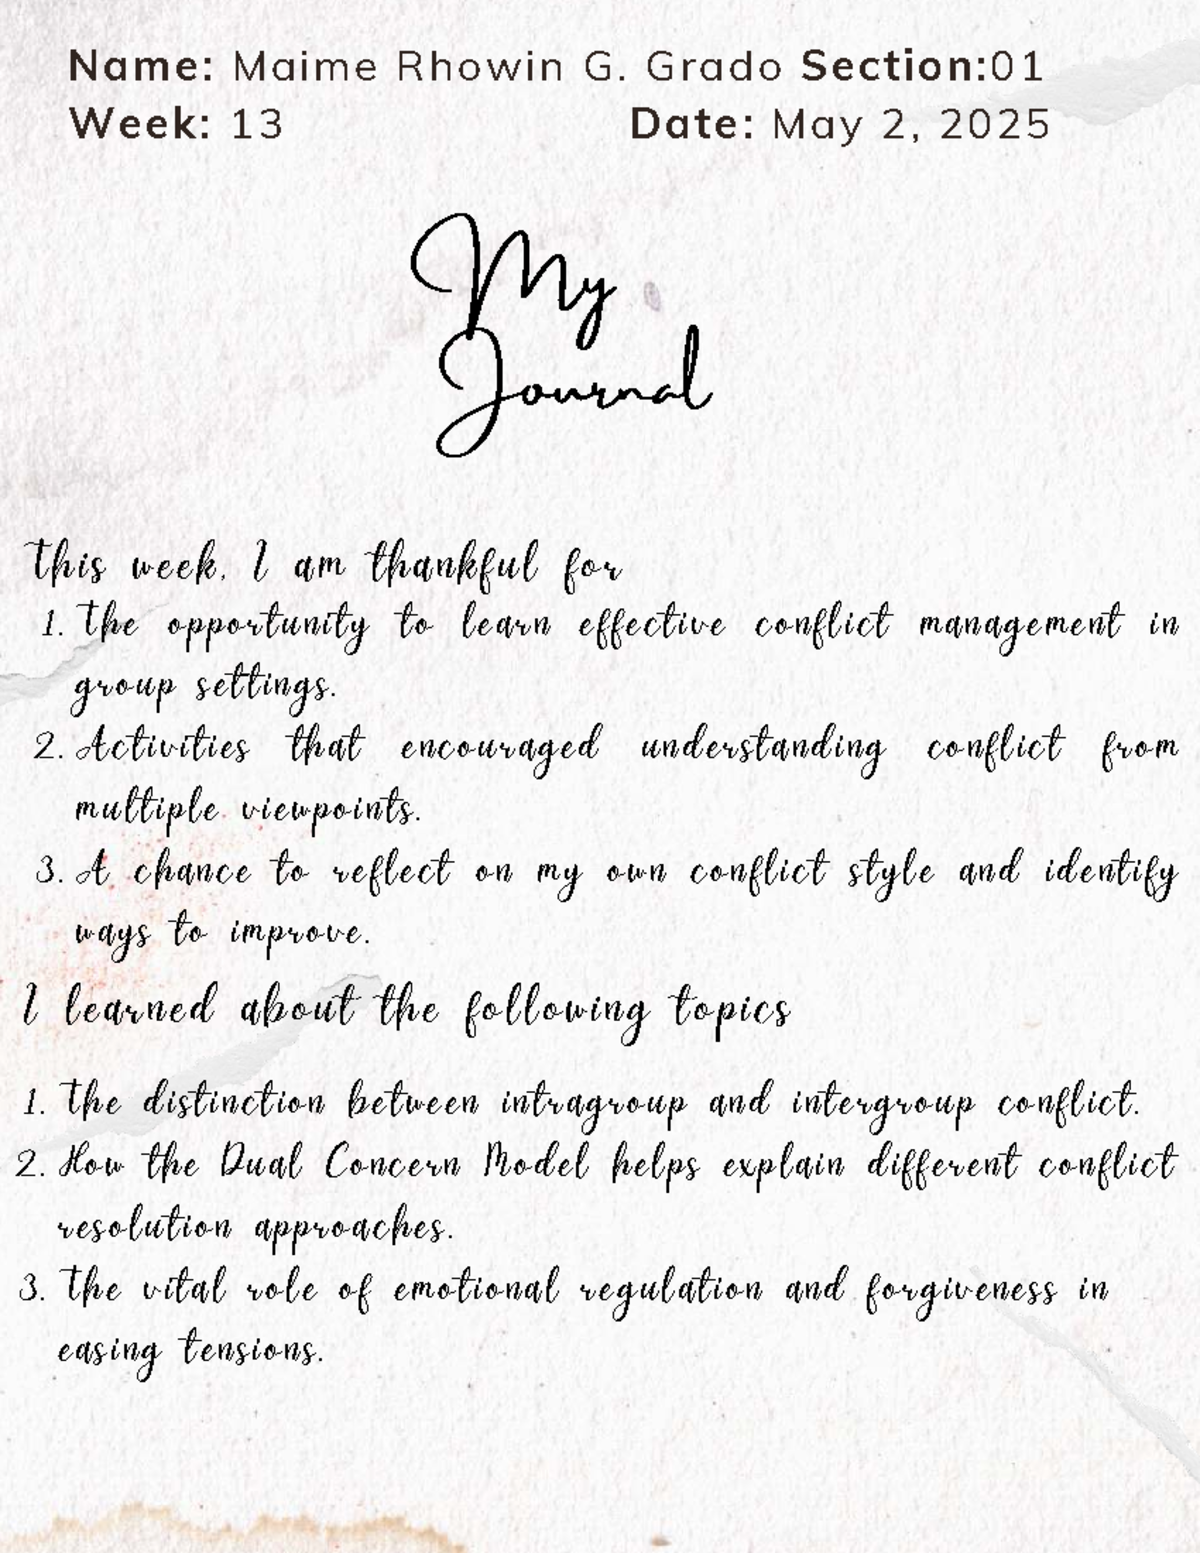 Name: Maime Rhowin G. Grado Section:01
Week: 13 Date: May 2, 2025
My
Journal
This week, I am thankful for
1. The opportunity to learn effective conflict management in
group settings.
2. Activities that encouraged understanding conflict from
multiple viewpoints.
3. A chance to reflect on my own conflict style and identify
ways to improve.
I learned about the following topics
1. The distinction between intragroup and intergroup conflict.
2. How the Dual Concern Model helps explain different conflict
resolution approaches.
3. The vital role of emotional regulation and forgiveness in
easing tensions.